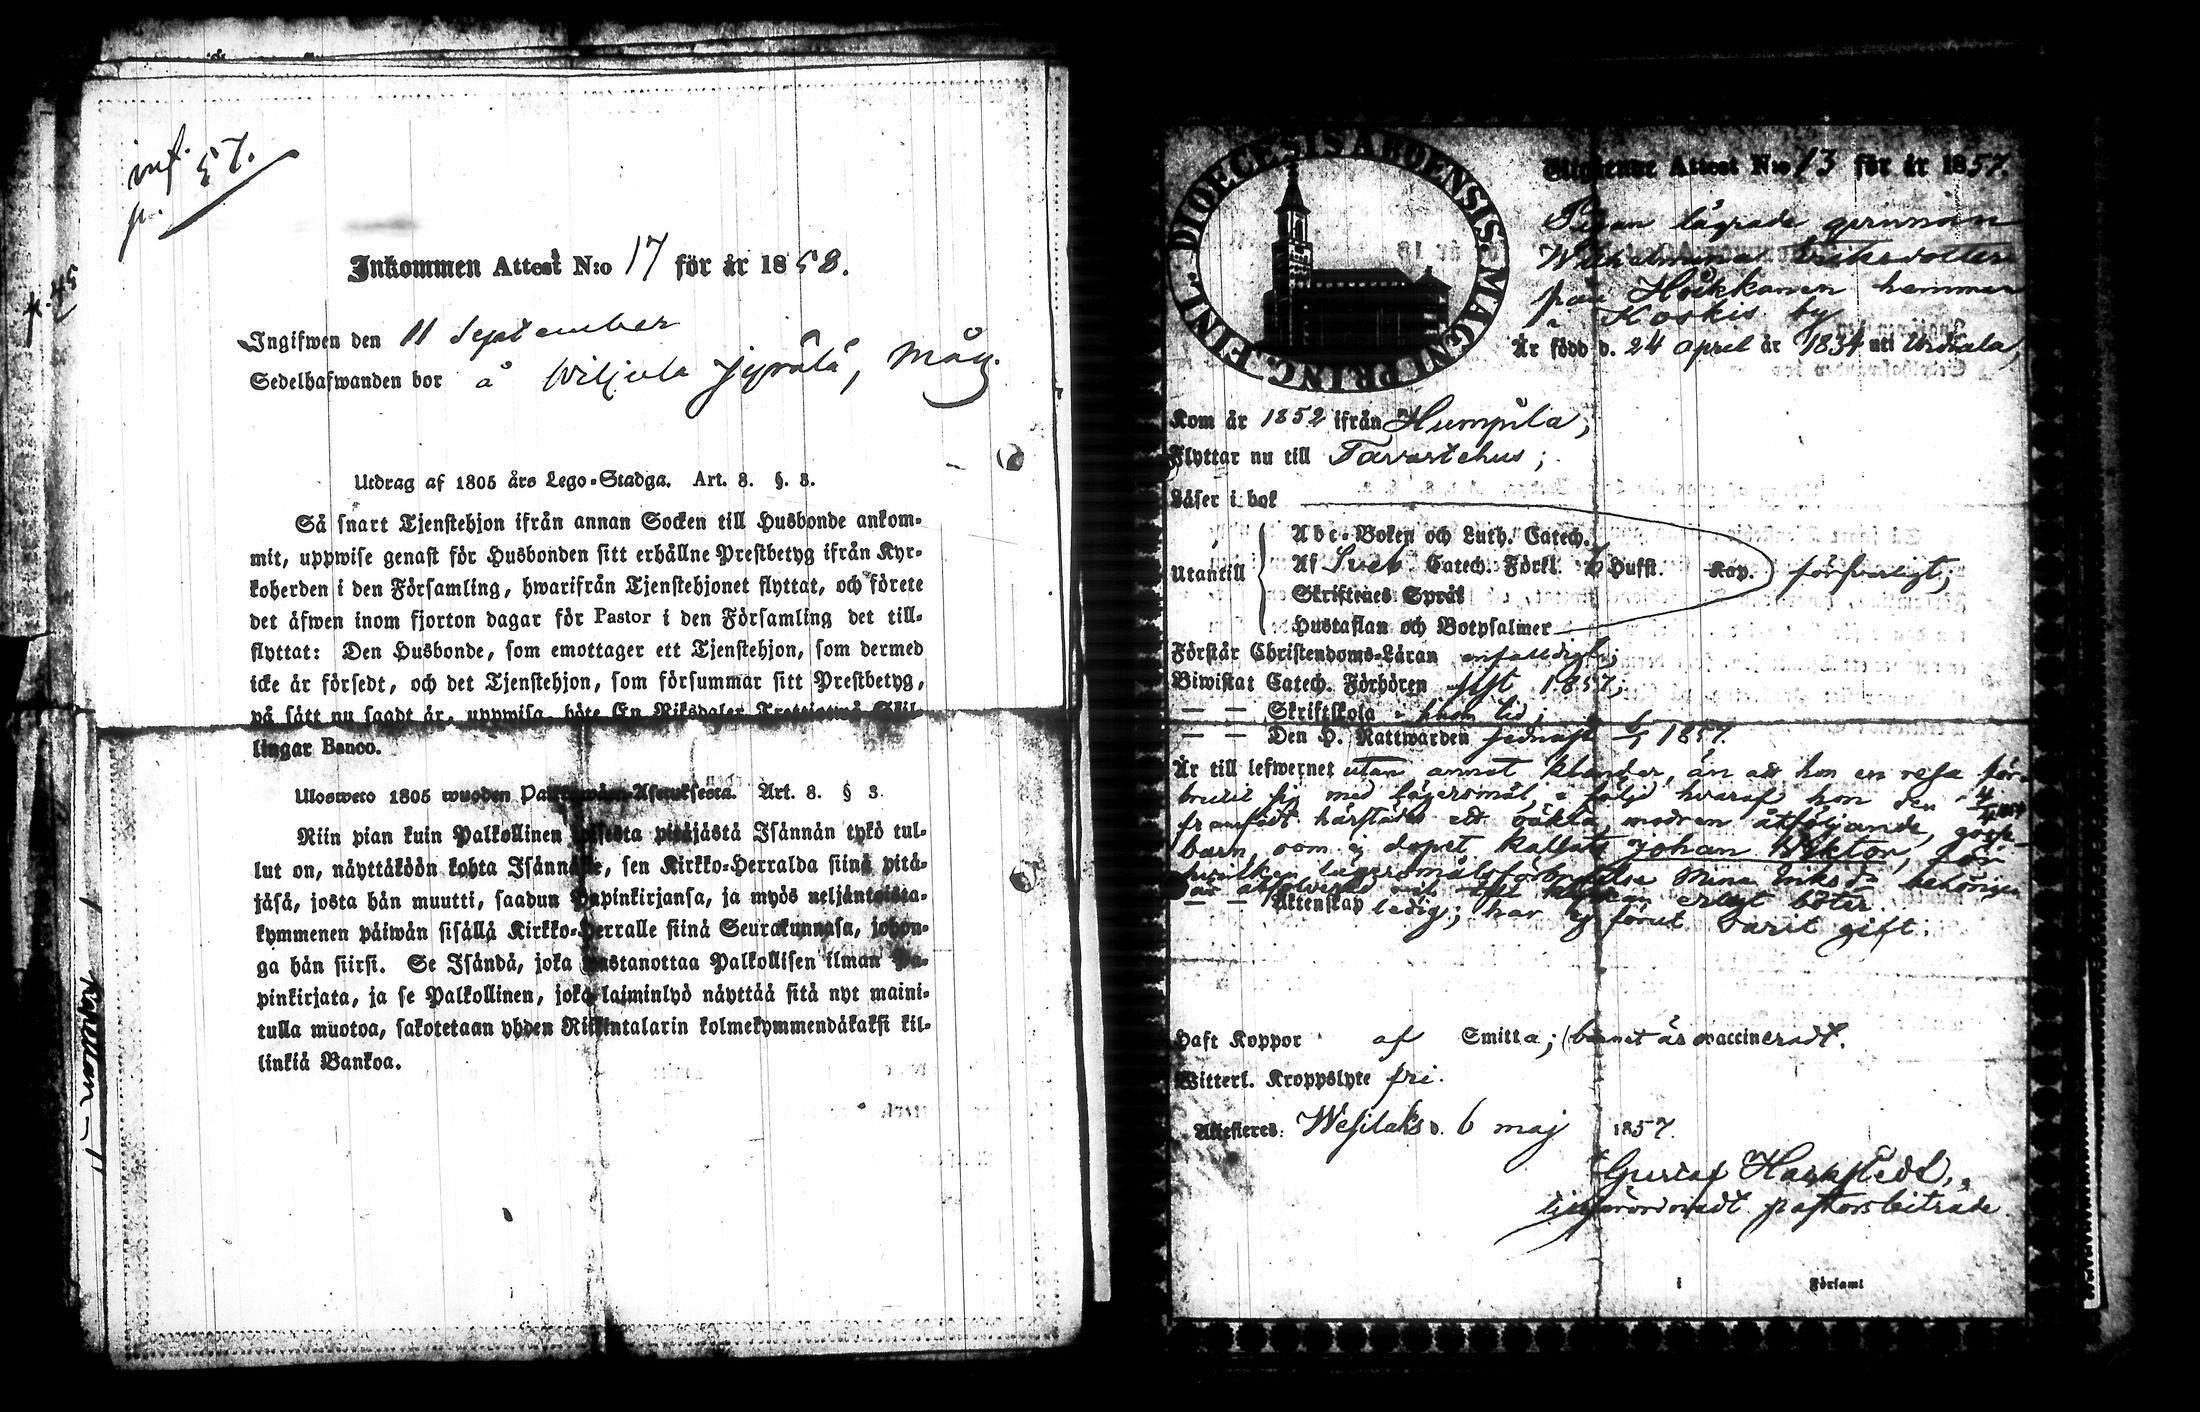 inf. p. 57.
Inkommen Attest N:o 17 för år 1858.
Ingifwen den 11 September
Sedelhafwanden bor å Wiljala Jyrälä, Mån.
Utdrag af 1805 års Lego-Stadga. Art. 8. §. 3.
Så snart Tjenstehjon ifrån annan Socken till Husbonde ankom-
mit, uppwise genast för Husbonden sitt erhållne Prestbetyg ifrån Kyr-
koherden i den Församling, hwarifrån Tjenstehjonet flyttat, och förete
det äfwen inom fjorton dagar för Pastor i den Församling det till-
flyttat: Den Husbonde, som emottager ett Tjenstehjon, som dermed
icke är försedt, och det Tjenstehjon, som försummar sitt Prestbetyg,
på sätt nu sagdt är, uppwisa, böte En Riksdaler Trettiotwå Skil-
lingar Banco.
Ulosweto 1805 wuoden Palkkawäen-Asetuksesta. Art. 8. § 3.
Niin pian kuin Palkollinen toisesta pitäjästä Isännän tykö tul-
lut on, näyttäköön kohta Isännälle, sen Kirkko-Herralda siinä pitä-
jäsä, josta hän muutti, saadun Papinkirjansa, ja myös neljäntoista-
kymmenen päiwän sisällä Kirkko-Herralle siinä Seurakunnasa, johon-
ga hän siirsi. Se Isändä, joka wastanottaa Palkollisen ilman Pa-
pinkirjata, ja se Palkollinen, joka laiminlyö näyttää sitä nyt maini-
tulla muotoa, sakotetaan yhden Riikintalarin kolmekymmendäkaksi kil-
linkiä Bankoa.
DIOECESIS ABOENSIS. MAGNI PRINC. FINL.
Utgående Attest N:o 13 för år 1857.
Pigan lägrade qvinnan
Wilhelmina Eriksdotter
från Hoikkanen hemman
i Koskis by
Är född d. 24 april år 1834 uti Urdiala,
Kom år 1852 ifrån Humpila;
Flyttar nu till Tavastehus;
Läser i bok
Utantill
Abc-Boken och Luth. Catech.
Af Sveb. Catech. Förkl. 6 Hufst. Kap. försvarligt;
Skriftenes Språk
Hustaflan och Botpsalmer
Förstår Christendoms-Läran enfaldigt;
Biwistat Catech. Förhören sist 1857;
— — Skriftskola i sinom tid;
— — Den H. Nattwarden sednast 6/1 1857.
Är till lefwernet utan annat klander, än att hon en resa för-
brutit sig med lägersmål, i följd hvaraf hon den
framfödt härstädes ett oäkta, modren åtföljande, gosse-
barn, som i dopet kallats Johan Wiktor, för
hvilken lägersmålsförbrytelse Mina Eriksdr behörigen
är aflöst och till kyrkan erlagt böter.
— — Äktenskap ledig; har ej förut varit gift.
Haft Koppor af Smitta; (barnet är vaccineradt.
Witterl. Kroppslyte fri.
Attesteras: Wesilaks d. 6 maj 1857.
Gustaf Harkstedt,
tillförordnadt pastorsbiträde
i Församl